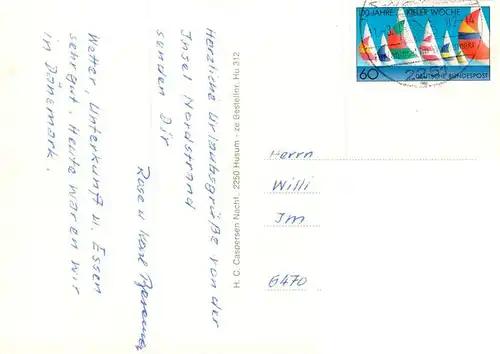 Herzliche Urlaubsgrüße von der
Insel Nordstrand
senden Dir
Rose u. Karl
Wetter, Unterkunft u. Essen
sehr gut. Heute waren wir
in Dänemark.
H. C. Caspersen Nachf., 2250 Husum - ze Bestellnr. Hu 312
100 JAHRE KIELER WOCHE
60 DEUTSCHE BUNDESPOST
2251
Herrn
Willi
Im
6470